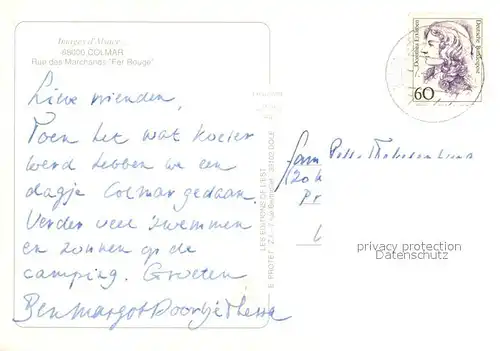 Images d'Alsace...
68000 COLMAR
Rue des Marchands "Fer Rouge"
Lieve vrienden,
Toen het wat koeler
werd hebben we een
dagje Colmar gedaan.
Verder veel zwemmen
en zonnen op de
camping. Groeten
Ben Margot Doortje Thessa
LES EDITIONS DE L'EST
Deutsche Bundespost
Dorothea Erxleben
60
fam
privacy protection
Datenschutz